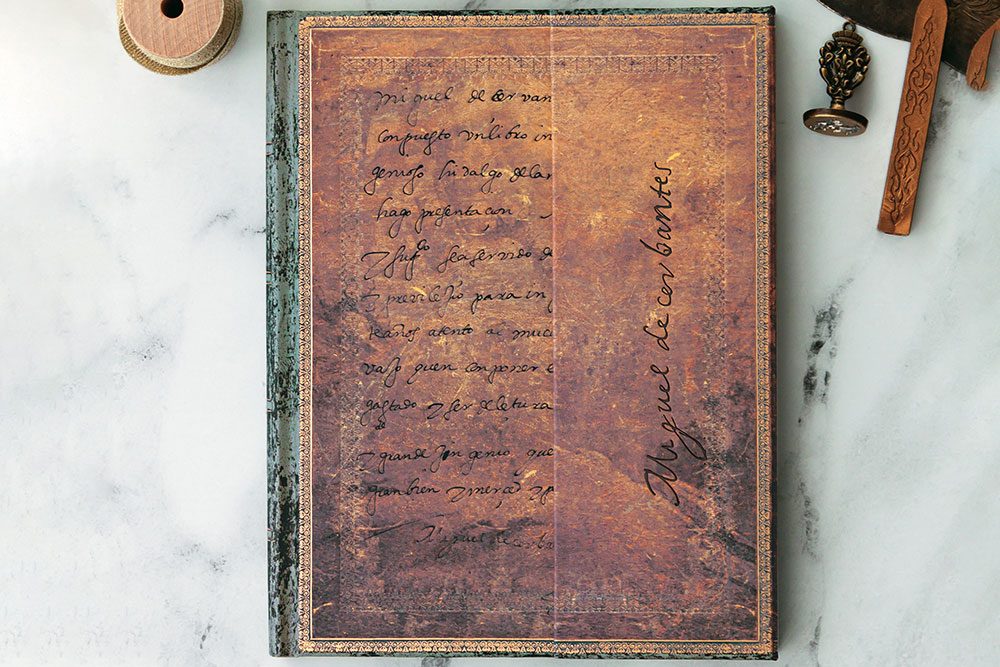 miguel de cervan
conpuesto vn libro in
genioso hidalgo de lan
hago presentaçon
seaservido de
previlejio para in
años atento al muc
quen conponer e
gastado y ser de letura
grande yn genio que
gran bien y merçed
Miguel de cerba
Miguel de cerbantes